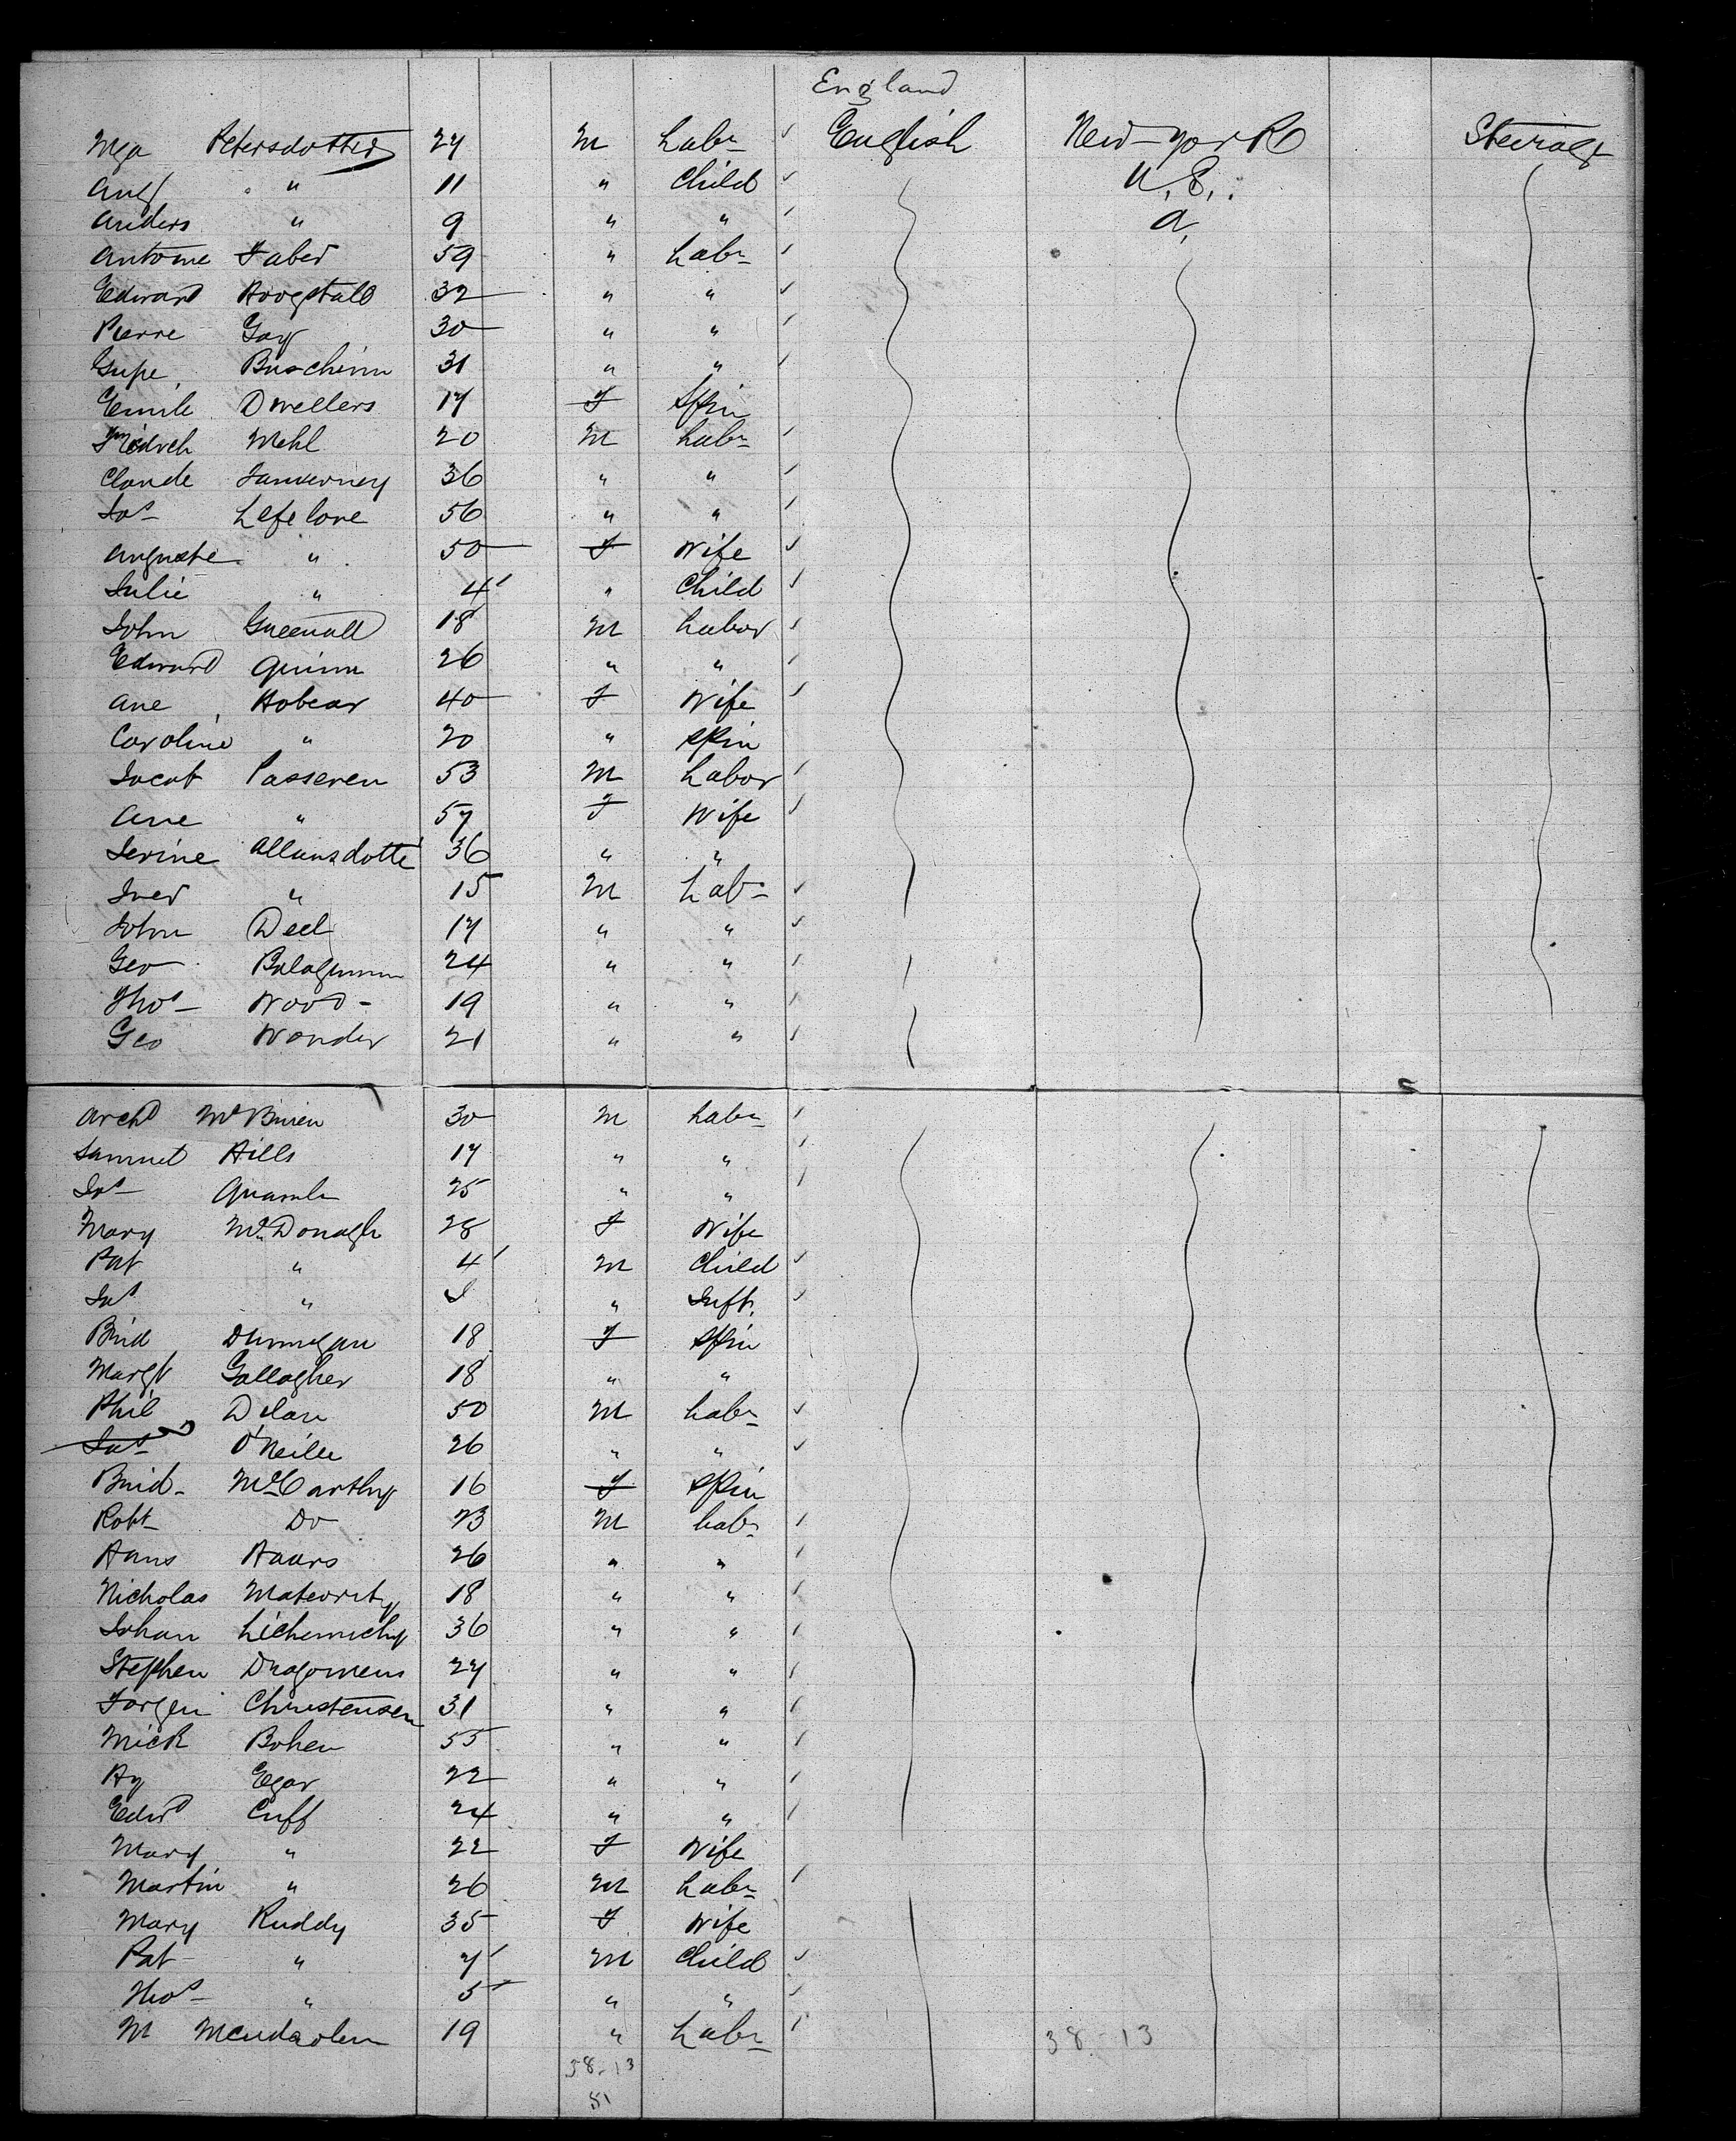 England
Petersdotter 27 M Labr English New-York Steerage
Aug " 11 " Child U.S.
Anders " 9 " " A.
Antoine Faber 59 " Labr
Edward Hoogstall 32 " "
Pierre Gay 30 " "
Buschinn 31 " "
Emile Dwellers 17 F Spin
Mehl 20 M Labr
Claude 36 " "
Jos Lefelone 56 " "
Auguste " 50 F Wife
Julie " 4 " Child
John Greenall 18 M Labor
Edward Quinn 26 " "
Ane Hobear 40 F Wife
Caroline " 20 " Spin
Jacob Passeren 53 M Labor
Ane " 57 F Wife
Serine Allunsdotte 36 " "
Iver " 15 M Lab
John Deel 17 " "
Geo 24 " "
Thos Wood 19 " "
Geo Wonder 21 " "
Archd McBrien 30 M Labr
Samuel Hills 17 " "
Quamln 25 " "
Mary McDonagh 28 F Wife
Pat " 4 M Child
Jas " " Inft.
Brid Dunnigan 18 F Spin
Margt Gallagher 18 " "
Phil Dolan 50 M Labr
Jas O'Neill 26 " "
Brid McCarthy 16 F Spin
Robt Do 23 M Labr
Hans Haars 26 " "
Nicholas Mateority 18 " "
Johan Lichemichy 36 " "
Stephen Dragomens 27 " "
Jorgen Christensen 31 " "
Mick Bohen 55 " "
Hy Egar 22 " "
Edwd Cuff 24 " "
Mary " 22 F Wife
Martin " 26 M Labr
Mary Ruddy 35 F Wife
Pat " 7 M Child
Thos " 5 " "
M 19 " Labr
38-13 38-13
51